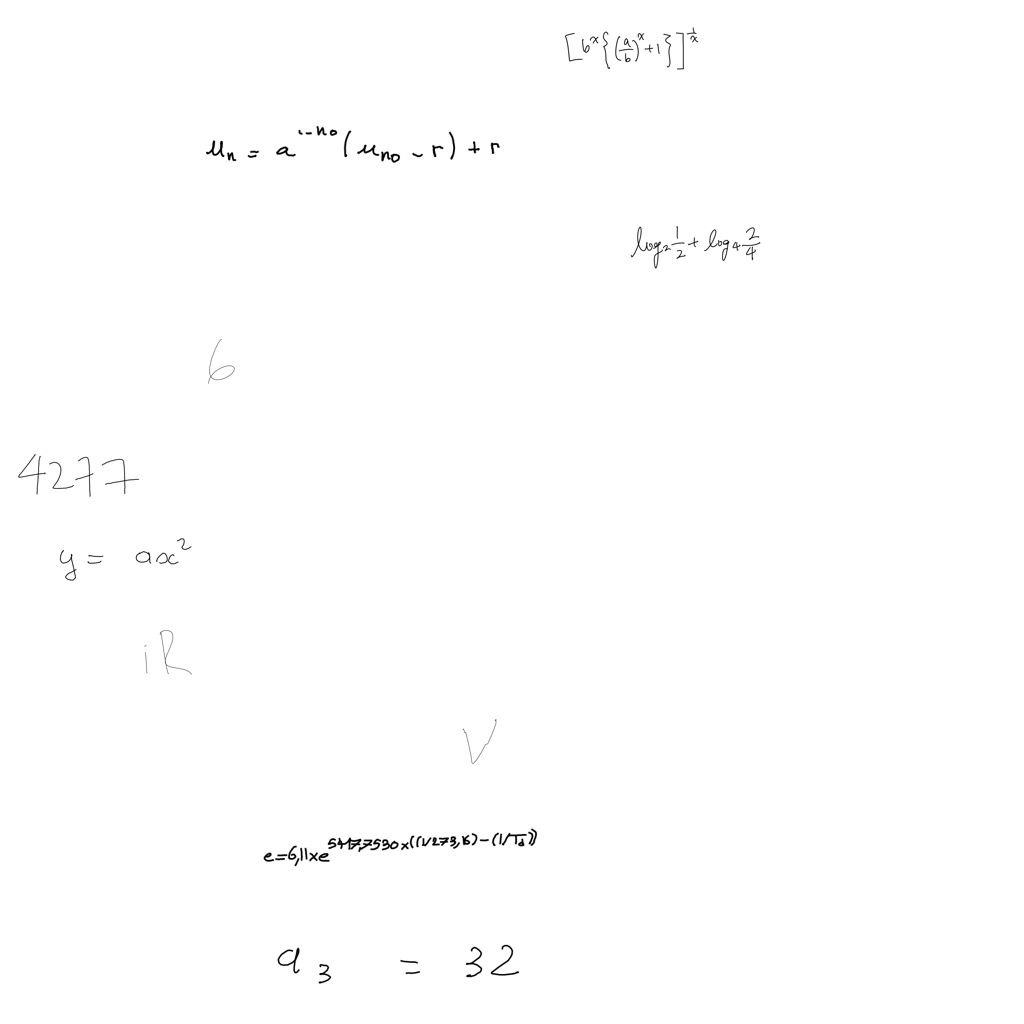 [b^x{(a/b)^x+1}]^{1/x}
u_n = a^{n-n_0}(u_{n_0} - r) + r
log_2 1/2 + log_4 2/4
6
4277
y = ax^2
iR
V
e=6,11×e^{5417,7530×((1/273,16)-(1/T_d))}
a_3 = 32